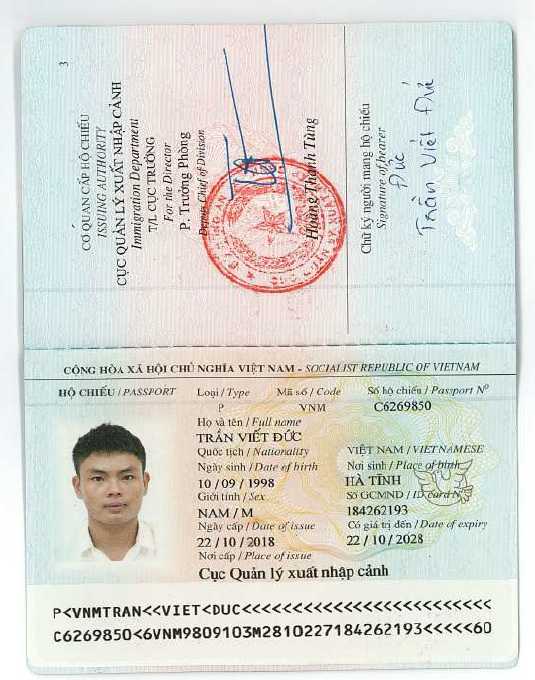 3
CƠ QUAN CẤP HỘ CHIẾU
ISSUING AUTHORITY
CỤC QUẢN LÝ XUẤT NHẬP CẢNH
Immigration Department
T/L CỤC TRƯỞNG
For the Director
P. Trưởng Phòng
Deputy Chief of Division
Hoàng Thanh Tùng
Chữ ký người mang hộ chiếu
Signature of bearer
Đức
Trần Viết Đức
CỘNG HÒA XÃ HỘI CHỦ NGHĨA VIỆT NAM - SOCIALIST REPUBLIC OF VIETNAM
HỘ CHIẾU / PASSPORT Loại / Type Mã số / Code Số hộ chiếu / Passport Nº
P VNM C6269850
Họ và tên / Full name
TRẦN VIẾT ĐỨC
Quốc tịch / Nationality VIỆT NAM / VIETNAMESE
Ngày sinh / Date of birth Nơi sinh / Place of birth
10 / 09 / 1998 HÀ TĨNH
Giới tính / Sex Số GCMND / ID card Nº
NAM / M 184262193
Ngày cấp / Date of issue Có giá trị đến / Date of expiry
22 / 10 / 2018 22 / 10 / 2028
Nơi cấp / Place of issue
Cục Quản lý xuất nhập cảnh
P<VNMTRAN<<VIET<DUC<<<<<<<<<<<<<<<<<<<<<<<<<
C6269850<6VNM9809103M2810227184262193<<<<<60